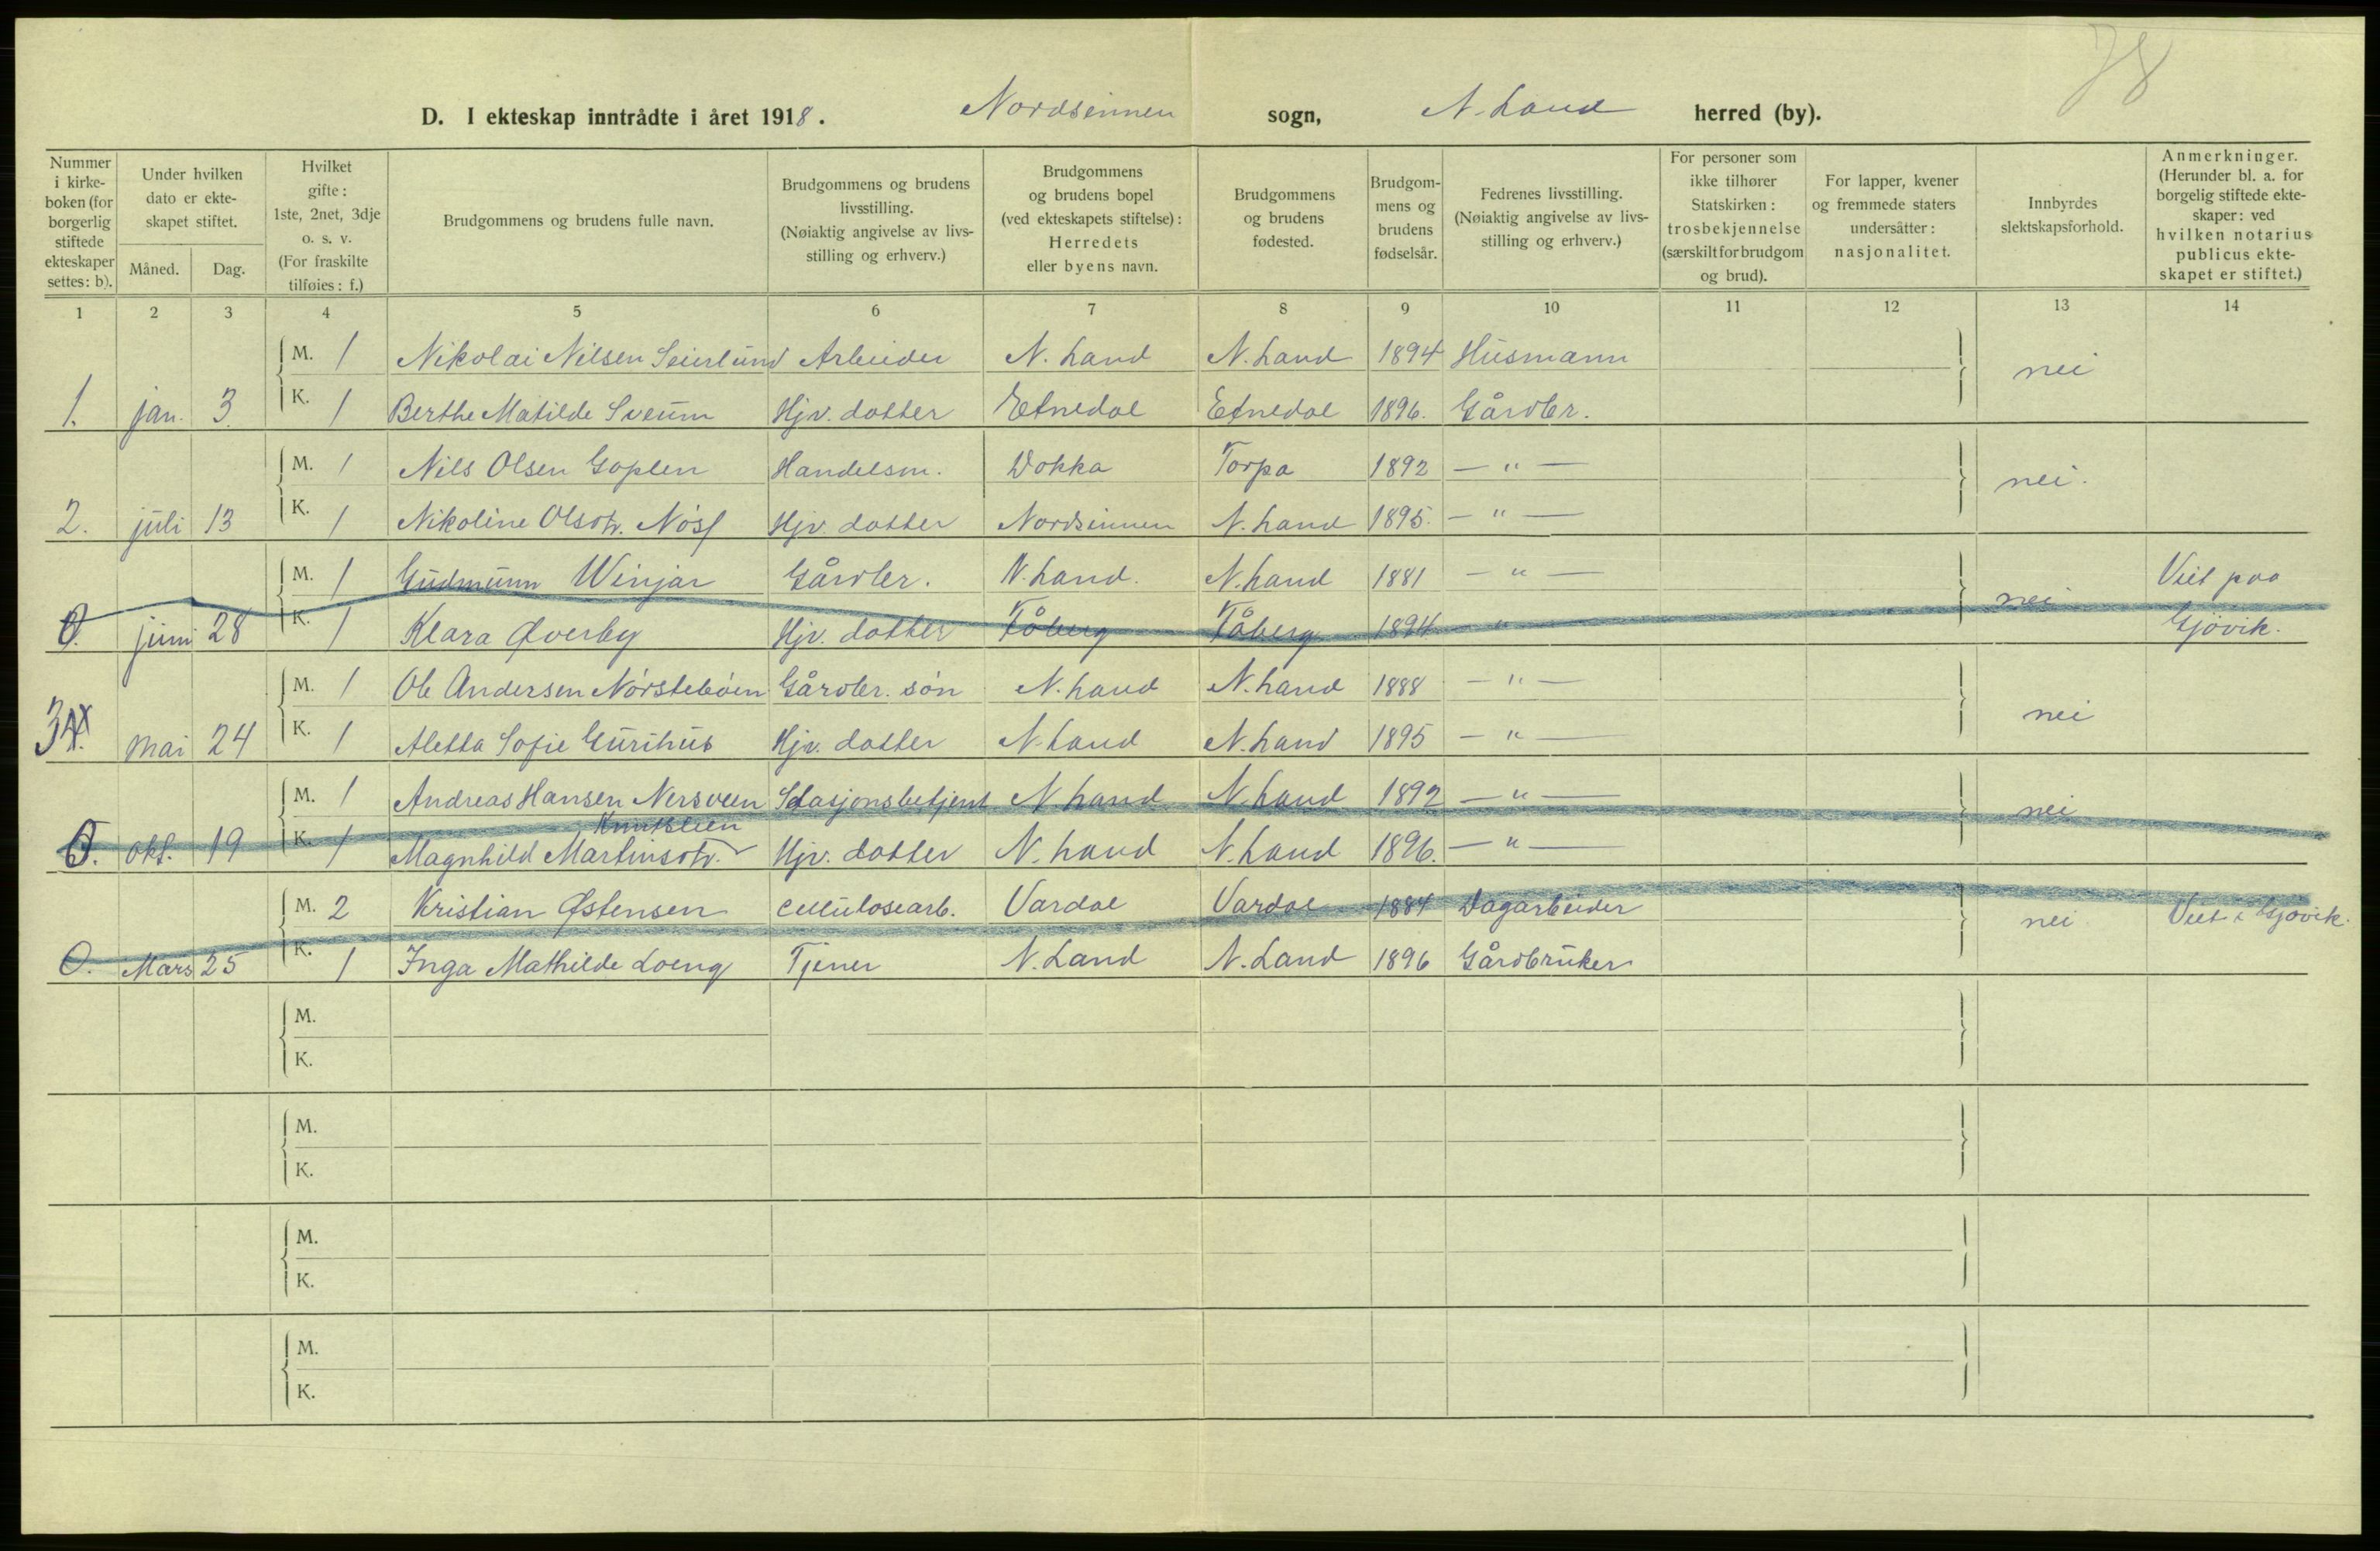 78
D. I ekteskap inntrådte i året 1918. Nordsinnen sogn, N. Land herred (by).
Nummer i kirkeboken (for borgerlig stiftede ekteskaper settes: b).
Under hvilken dato er ekteskapet stiftet.
Måned. Dag.
Hvilket gifte: 1ste, 2net, 3dje o. s. v. (For fraskilte tilføies: f.)
Brudgommens og brudens fulle navn.
Brudgommens og brudens livsstilling. (Nøiaktig angivelse av livsstilling og erhverv.)
Brudgommens og brudens bopel (ved ekteskapets stiftelse): Herredets eller byens navn.
Brudgommens og brudens fødested.
Brudgommens og brudens fødselsår.
Fedrenes livsstilling. (Nøiaktig angivelse av livsstilling og erhverv.)
For personer som ikke tilhører Statskirken: trosbekjennelse (særskilt for brudgom og brud).
For lapper, kvener og fremmede staters undersåtter: nasjonalitet.
Innbyrdes slektskapsforhold.
Anmerkninger. (Herunder bl. a. for borgelig stiftede ekteskaper: ved hvilken notarius publicus ekteskapet er stiftet.)
1 2 3 4 5 6 7 8 9 10 11 12 13 14
M. 1 Nikolai Nilsen Seierlund Arbeider N. Land N. Land 1894 Husmann nei
1. jan. 3. K. 1 Berthe Matilde Sveum Hjv. datter Etnedal Etnedal 1896. Gårdbr.
M. 1 Nils Olsen Goplen Handelsm. Dokka Torpa 1892 — " — nei.
2. juli 13 K. 1 Nikoline Olsdtr. Nøss Hjv. datter Nordsinnen N. Land 1895. — " —
M. 1 Gudmunn Winjar Gårdbr. N. Land. N. Land 1881 — " — nei Viet paa
0. juni 28 K. 1 Klara Øverby Hjv. datter Fåberg Fåberg 1894 — " — Gjøvik.
M. 1 Ole Andersen Nørstebøen Gårdbr. søn N. Land N. Land 1888 — " — nei
3 4. mai 24 K. 1 Aletta Sofie Gurihus Hjv. datter N. Land N. Land 1895 — " —
M. 1 Andreas Hansen Nersveen Stasjonsbetjent N. Land N. Land 1892 — " — nei
Knutslien
0. okt. 19 K. 1 Magnhild Martinsdtr. Hjv. datter N. Land N. Land 1896. — " —
M. 2 Kristian Østensen Cellulosearb. Vardal Vardal 1884 Dagarbeider nei Viet i Gjøvik.
0. Mars 25 K. 1 Inga Mathilde Loeng Tjener N. Land N. Land 1896 Gårdbruker
M.
K.
M.
K.
M.
K.
M.
K.